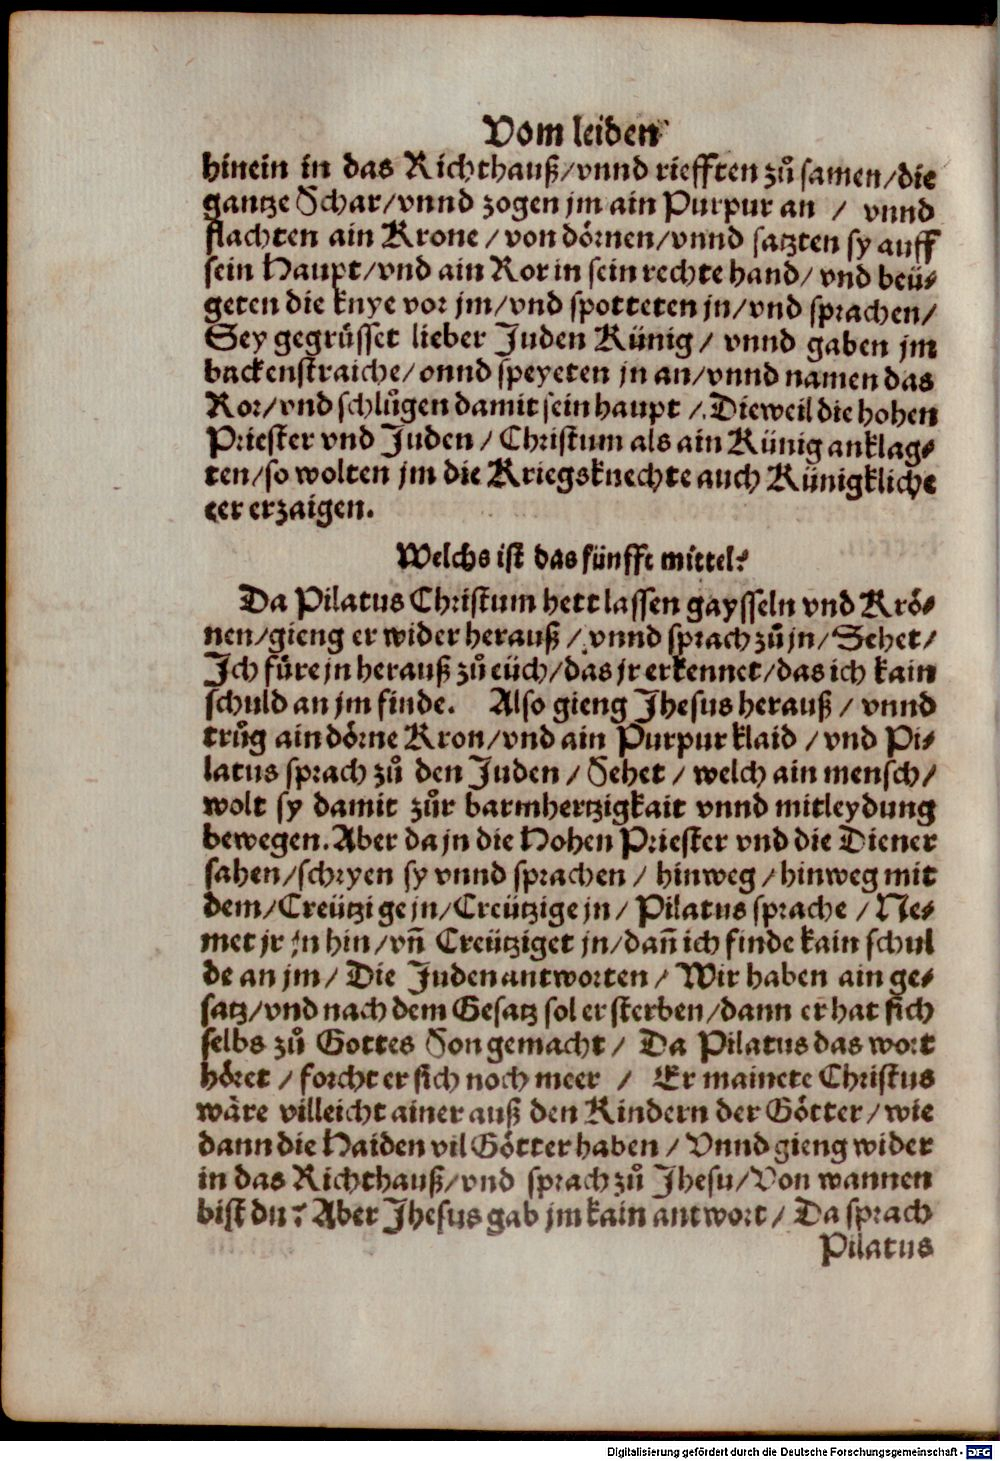 Vom leiden
hinein in das Richthauß/vnnd riefften zů samen/die
gantze Schar/vnnd zogen jm ain Purpur an / vnnd
flachten ain Krone / von dörnen/vnnd satzten sy auff
sein Haupt/vnd ain Ror in sein rechte hand/ vnd beü⸗
geten die knye vor jm/vnd spotteten jn/vnd sprachen/
Sey gegrüsset lieber Juden Künig/ vnnd gaben jm
backenstraiche/onnd speyeten jn an/vnnd namen das
Ror/vnd schlůgen damit sein haupt /. Dieweil die hohen
Priester vnd Juden / Christum als ain Künig anklag⸗
ten/so wolten jm die Kriegsknechte auch Künigkliche
eer erzaigen.
Welchs ist das fünfft mittel?
Da Pilatus Christum hett lassen gaysseln vnd Krö⸗
nen/gieng er wider herauß / vnnd sprach zů jn/ Sehet/
Ich füre jn herauß zů eüch/das jr erkennet/das ich kain
schuld an jm finde. Also gieng Jhesus herauß / vnnd
trůg ain dörne Kron/vnd ain Purpur klaid /vnd Pi⸗
latus sprach zů den Juden / Sehet / welch ain mensch/
wolt sy damit zůr barmhertzigkait vnnd mitleydung
bewegen. Aber da jn die Hohen Priester vnd die Diener
sahen/schryen sy vnnd sprachen / hinweg /hinweg mit
dem/Creützige jn/Creützige jn/ Pilatus sprache / Ne⸗
met jr jn hin/vñ Creütziget jn/dañ ich finde kain schul
de an jm/ Die Juden antworten/ Wir haben ain ge⸗
satz/vnd nach dem Gesatz sol er sterben/dann er hat sich
selbs zů Gottes Son gemacht/ Da Pilatus das wort
höret / forcht er sich noch meer / Er mainete Christus
wäre villeicht ainer auß den Kindern der Götter/wie
dann die Haiden vil Götter haben/ Vnnd gieng wider
in das Richthauß/vnd sprach zů Jhesu/Von wannen
bist du? Aber Jhesus gab jm kain antwort/ Da sprach
Pilatus
Digitalisierung gefördert durch die Deutsche Forschungsgemeinschaft - DFG